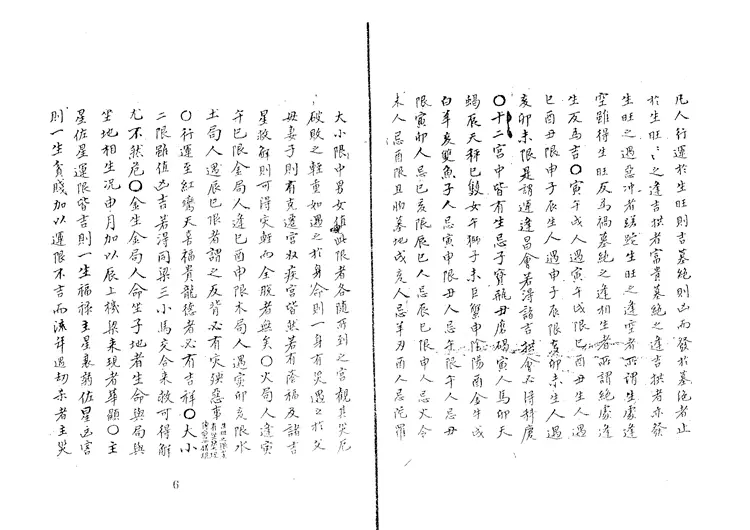 凡人行運於生旺則吉墓絶則凶而發於墓絶者止
於生旺〻之逢吉拱者富貴墓絶之逢吉拱者亦發
生旺之遇惡冲者蹉跎生旺之逢空者所謂生處逢
空雖得生旺反爲禍墓絶之逢相生者所謂絶處逢
生反爲吉〇寅午戌人遇寅午戌限巳酉丑生人遇
巳酉丑限申子辰生人遇申子辰限亥卯未生人遇
亥卯未限是謂逢逢昌會若得諸吉拱會必得科慶
〇十二宮中皆有生忌子寶瓶丑磨碣寅人馬卯天
蝎辰天秤巳雙女午獅子未巨蟹申陰陽酉金牛戌
白羊亥雙魚子人忌寅申限丑人忌午限午人忌丑
限寅卯人忌巳亥限辰巳人忌辰巳限申人忌火令
未人忌酉限丑為墓地戌亥人忌羊刃酉人忌陀羅
大小限中男女値此限者各隨所到之宮觀其災厄
破敗之輕重如遇之於身命則一身有災遇之於父
母妻子則有克遷宮奴疾宮皆然若有蔭福及諸吉
星救解則可得災輕而全脫者無矣〇火局人逢寅
午巳限金局人逢巳酉申限木局人遇寅卯亥限水
土局人遇辰巳限者謂之反背必有災殃惡事
〇行運至紅鸞天喜福貴龍德者必有吉祥〇大小
二限雖值凶吉若得同梁三小馬交合來救可得解
尤不然危〇金生金局人命坐子地者生命與局與
坐地相生況申月加以辰上機梁來現者畢顯〇主
星佐星運限皆吉則一生福祿主星衰弱佐星凶害
則一生貧賤加以運限不吉而流祥遇劫杀者主災
6